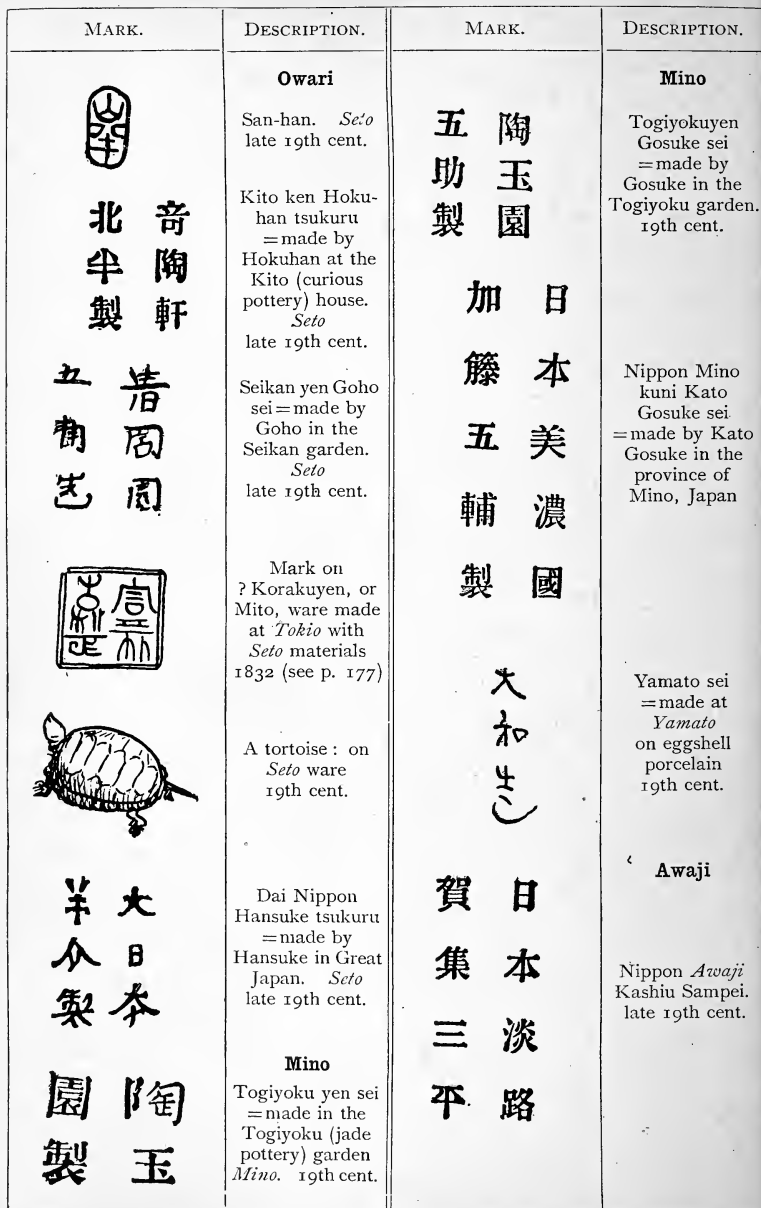 MARK.
DESCRIPTION.
Owari
山半
San-han. Seto
late 19th cent.
竒陶軒
北半製
Kito ken Hoku-
han tsukuru
=made by
Hokuhan at the
Kito (curious
pottery) house.
Seto
late 19th cent.
園
五
Seikan yen Goho
sei=made by
Goho in the
Seikan garden.
Seto
late 19th cent.
Mark on
? Korakuyen, or
Mito, ware made
at Tokio with
Seto materials
1832 (see p. 177)
A tortoise: on
Seto ware
19th cent.
大日本
半介製
Dai Nippon
Hansuke tsukuru
=made by
Hansuke in Great
Japan. Seto
late 19th cent.
Mino
陶玉
園製
Togiyoku yen sei
=made in the
Togiyoku (jade
pottery) garden
Mino. 19th cent.
MARK.
DESCRIPTION.
Mino
陶玉園
五助製
Togiyokuyen
Gosuke sei
=made by
Gosuke in the
Togiyoku garden.
19th cent.
日本美濃國
加籐五輔製
Nippon Mino
kuni Kato
Gosuke sei
=made by Kato
Gosuke in the
province of
Mino, Japan
大和造
Yamato sei
=made at
Yamato
on eggshell
porcelain
19th cent.
Awaji
日本淡路
賀集三平
Nippon Awaji
Kashiu Sampei.
late 19th cent.